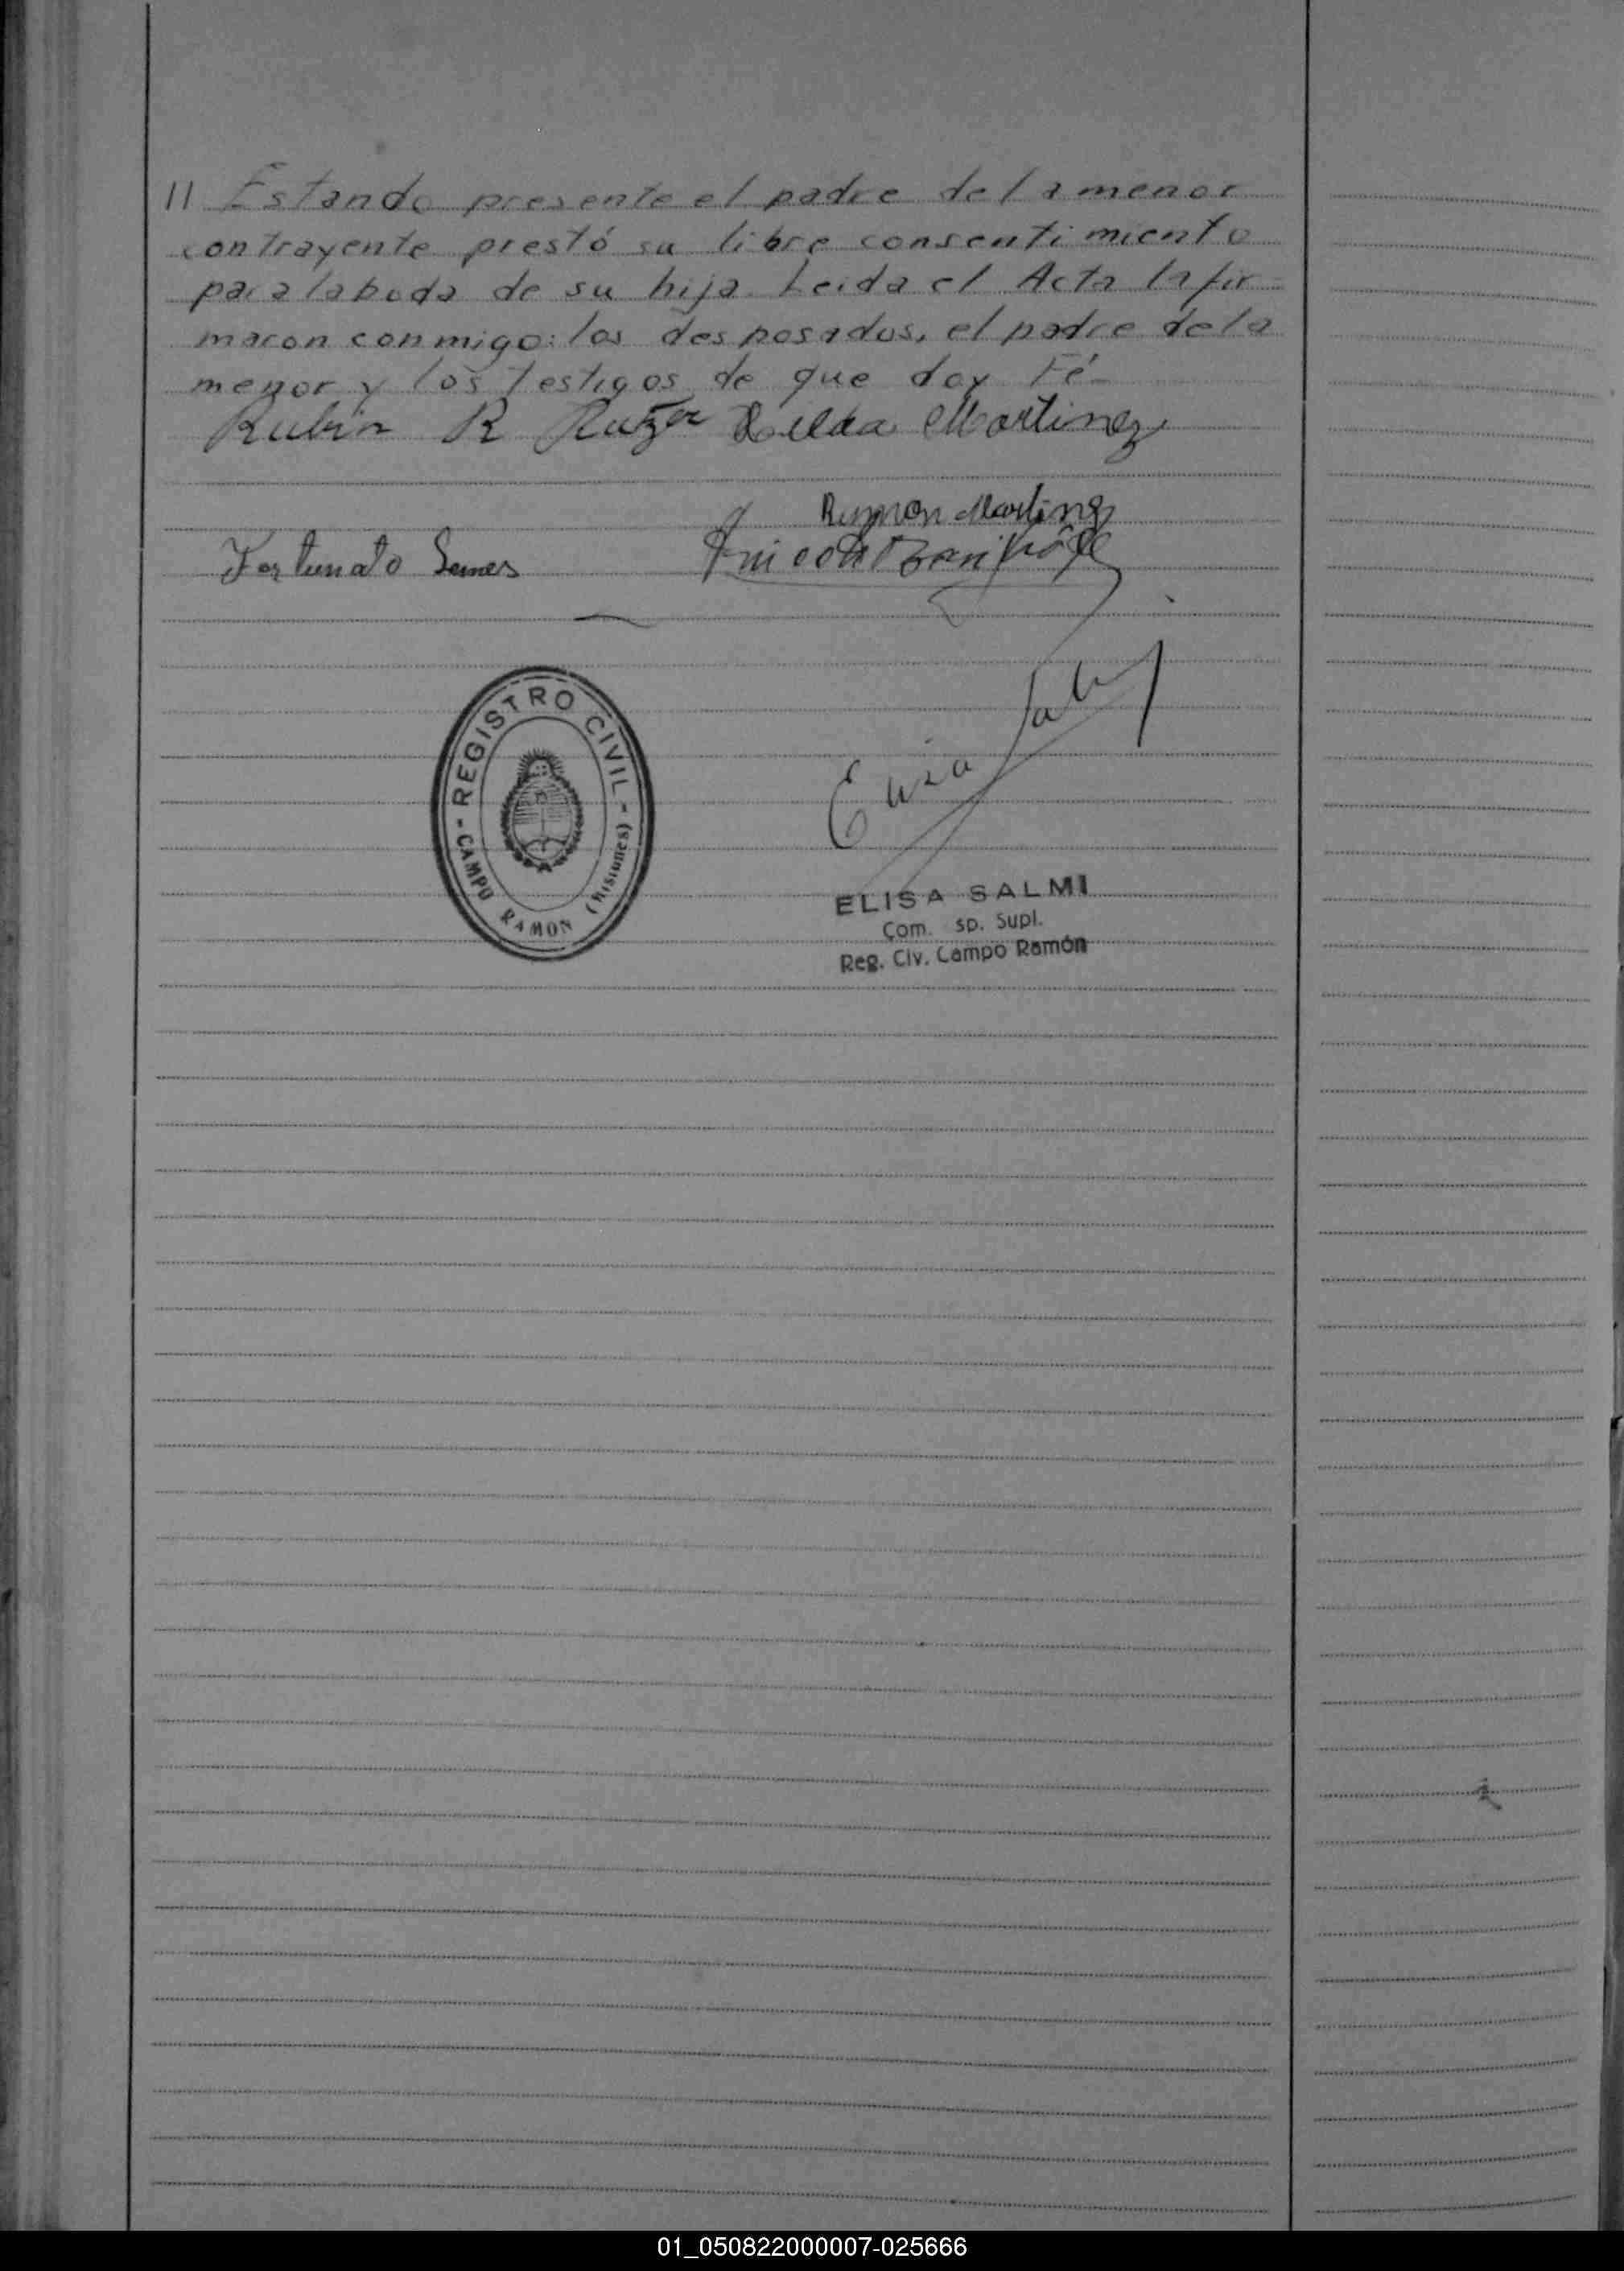 11 Estando presente el padre de la menor
contrayente prestó su libre consentimiento
para la boda de su hija. Leida el Acta la fir=
maron conmigo: los desposados, el padre de la
menor y los testigos de que doy Fé-
Rubin R Martinez
Ramón Martinez
Fortunato
REGISTRO CIVIL
- CAMPO RAMON (Misiones) -
Elisa Salmi
ELISA SALMI
Com. sp. Supl.
Reg. Civ. Campo Ramón
01_050822000007-025666